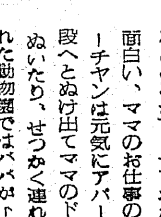 面白い、ママのお仕事の
ーチヤンは元気にアパー
段へとぬけ出てママのド
ぬいたり、せつかく連れ
れた動物園ではパパが